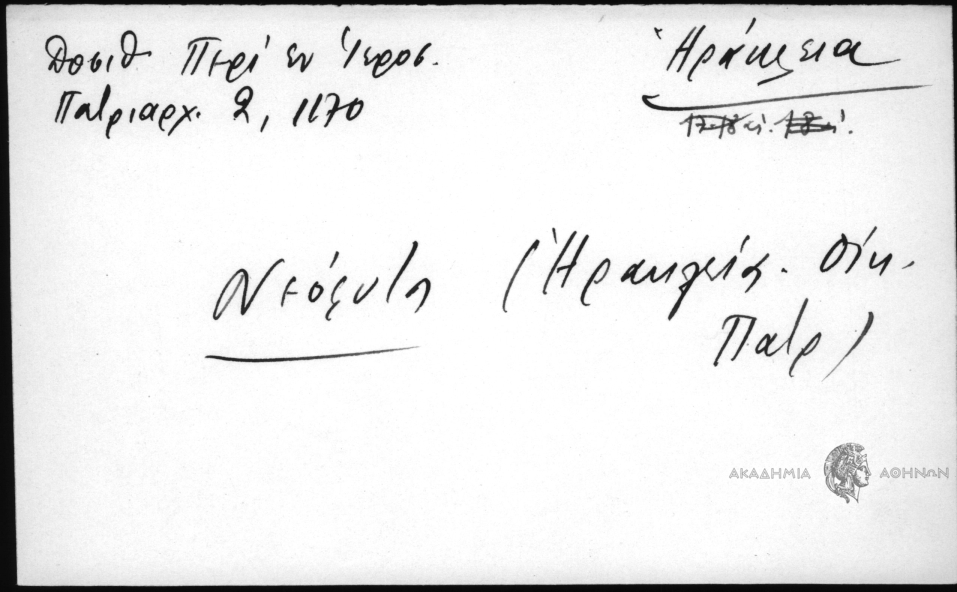 Δοσιθ Περί εν Ἱεροσ.
Πατριαρχ. 2, 1170
Ἡράκλεια
17-18 αἰ. 18 αἰ.
Νεόφυτος
(Ἡρακλείας. Οἰκ.
Πατρ)
ΑΚΑΔΗΜΙΑ ΑΘΗΝΩΝ